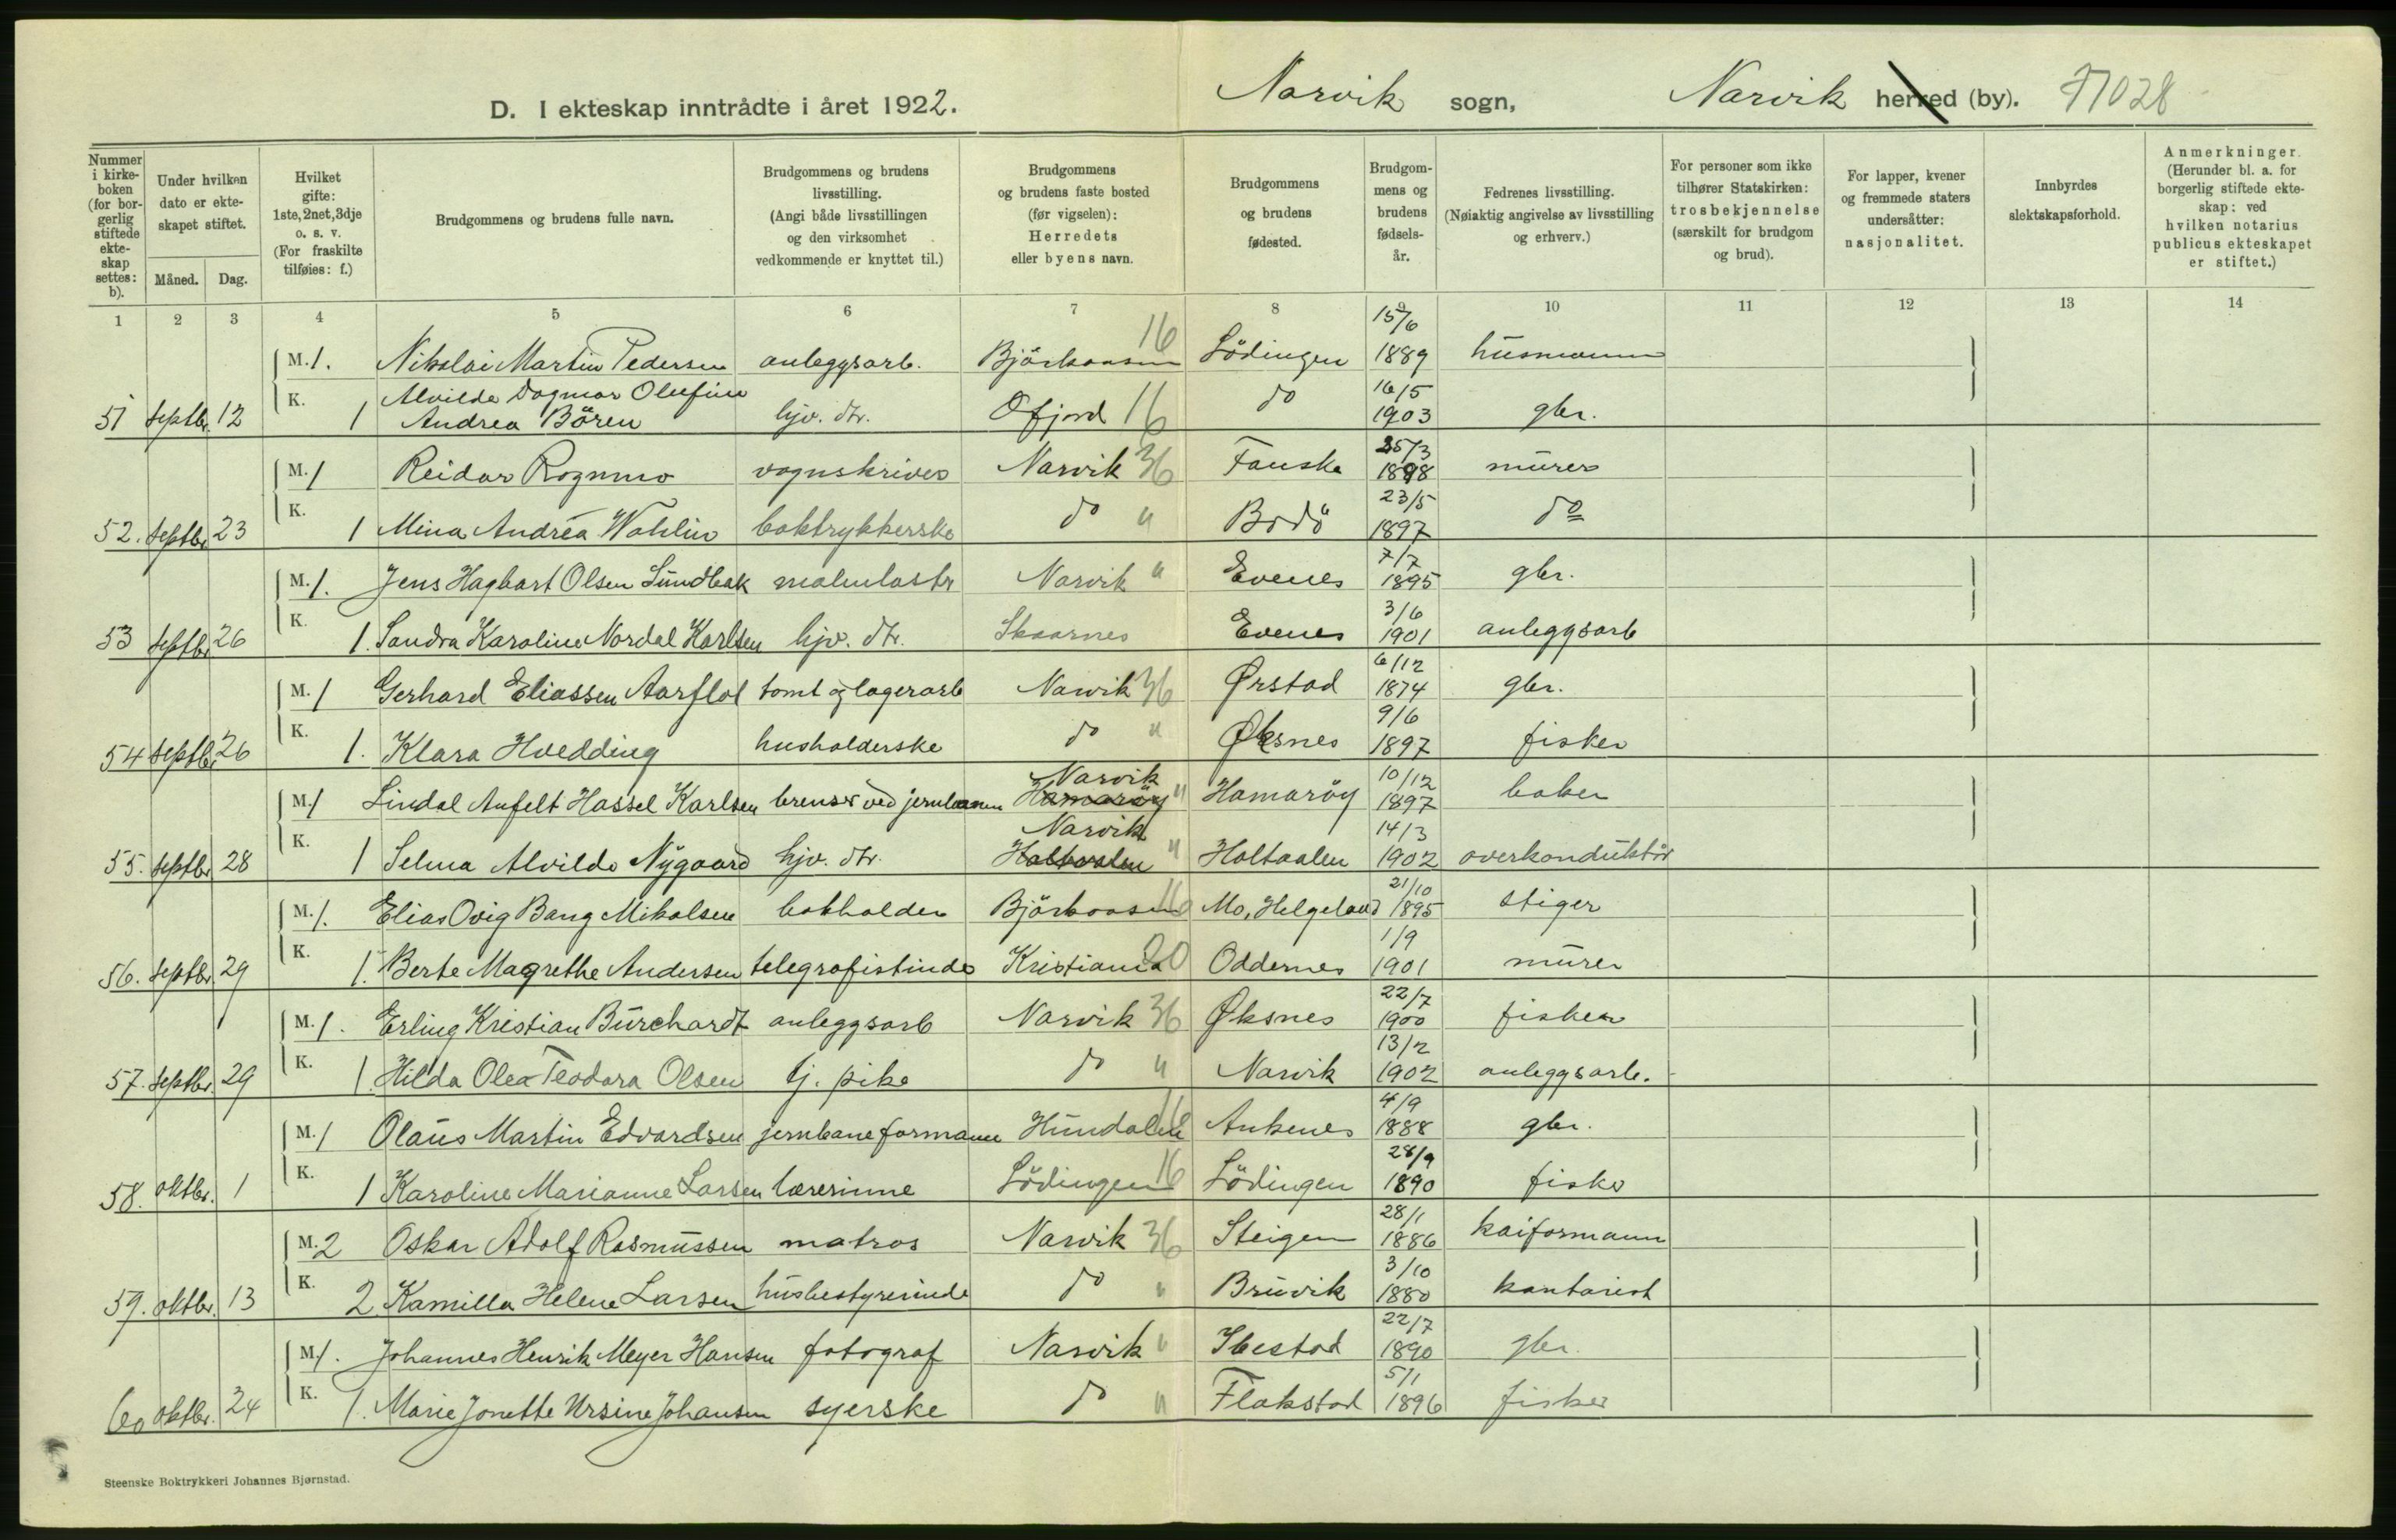 D. I ekteskap inntrådte i året 1922. Narvik sogn, Narvik herred (by). 77028
Nummer i kirkeboken (for borgerlig stiftede ekteskap settes: b).
Under hvilken dato er ekteskapet stiftet. Måned. Dag.
Hvilket gifte: 1ste, 2net, 3dje o. s. v. (For fraskilte tilføies: f.)
Brudgommens og brudens fulle navn.
Brudgommens og brudens livsstilling. (Angi både livsstillingen og den virksomhet vedkommende er knyttet til.)
Brudgommens og brudens faste bosted (før vigselen): Herredets eller byens navn.
Brudgommens og brudens fødested.
Brudgommens og brudens fødselsår.
Fedrenes livsstilling. (Nøiaktig angivelse av livsstilling og erhverv.)
For personer som ikke tilhører Statskirken: trosbekjennelse (særskilt for brudgom og brud).
For lapper, kvener og fremmede staters undersåtter: nasjonalitet.
Innbyrdes slektskapsforhold.
Anmerkninger. (Herunder bl. a. for borgerlig stiftede ekteskap: ved hvilken notarius publicus ekteskapet er stiftet.)
1 2 3 4 5 6 7 8 9 10 11 12 13 14
M. 1. Nikolai Martin Pedersen anleggsarb. Björkaasen 16 Lödingen 15/6 1889 husmann
51 septbr. 12 K. 1 Alvilde Dagmar Olufine Andrea Bören hjv. dtr. Ofjord 16 do 16/5 1903 gbr.
M. 1 Reidar Rognmo vognskriver Narvik 36 Fauske 25/3 1898 murer
52. septbr. 23 K. 1 Mina Andrea Wahlin boktrykkerske do " Bodö 23/5 1897 do
M. 1. Jens Hagbart Olsen Sundbak malmlastr Narvik " Evenes 7/7 1895 gbr.
53 septbr. 26 K. 1. Sandra Karoline Nordal Karlsen hjv. dtr. Skaarnes Evenes 3/6 1901 anleggsarb
M. 1 Gerhard Eliassen Aarflot tomt og lagerarb Narvik 36 Ørstad 6/12 1874 gbr.
54 septbr. 26 K. 1. Klara Hvedding husholderske do " Øksnes 9/6 1897 fisker
M. 1 Lindal Anfelt Hassel Karlsen brenser ved jernbanen Narvik Hamaröy " Hamaröy 10/12 1897 baker
55. septbr. 28 K. 1 Selma Alvilde Nygaard hjv. dtr. Narvik Haltaalen " Holtaalen 14/3 1902 overkonduktör
M. 1. Elias Ovig Bang Mikalsen bokholder Björkaasen 16 Mo, Helgeland 21/10 1895 stiger
56. septbr. 29 K. 1. Berte Magrethe Andersen telegrafistinde Kristiania 20 Oddernes 1/9 1901 murer
M. 1. Erling Kristian Burchardt anleggsarb Narvik 36 Øksnes 22/7 1900 fisker
57. septbr. 29 K. 1 Hilda Olea Teodora Olsen tj. pike do " Narvik 13/2 1902 anleggsarb.
M. 1 Olaus Martin Edvardsen jernbaneformann Hundalen 16 Ankenes 4/9 1888 gbr.
58. oktbr. 1 K. 1 Karoline Marianne Larsen lærerinne Lödingen 16 Lödingen 28/9 1890 fisker
M. 2 Oskar Adolf Rasmussen matros Narvik 36 Steigen 28/1 1886 kaiformann
59. oktbr. 13 K. 2 Kamilla Helene Larsen husbestyrerinde do " Bruvik 3/10 1880 kontorist
M. 1. Johannes Henrik Meyer Hansen fotograf Narvik " Ibestad 22/7 1890 gbr.
60 oktbr. 24 K. 1. Marie Jonette Ursine Johansen syerske do " Flakstad 5/1 1896 fisker
Steenske Boktrykkeri Johannes Bjørnstad.